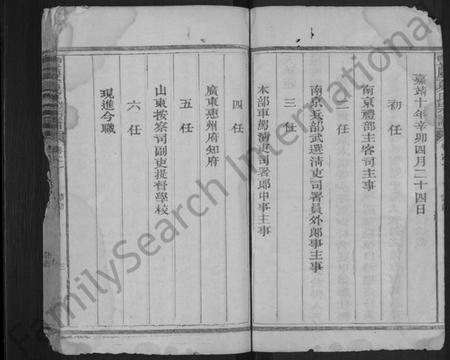 嘉靖十年辛卯四月二十四日
初任
南京禮部主客司主事
二任
南京兵部武選清吏司署員外郎事主事
三任
本部車駕清吏司署郎中事主事
四任
廣東惠州府知府
五任
山東按察司副吏提督學校
六任
現進今職
FamilySearch International